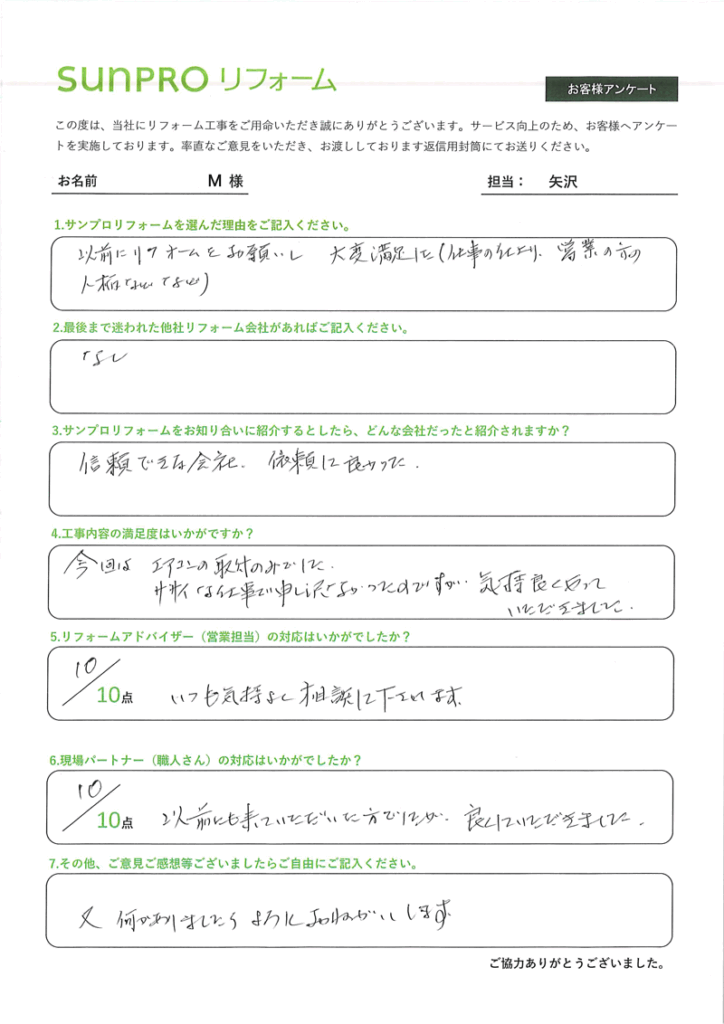 SUNPRO リフォーム
お客様アンケート
この度は、当社にリフォーム工事をご用命いただき誠にありがとうございます。サービス向上のため、お客様へアンケー
トを実施しております。率直なご意見をいただき、お渡ししております返信用封筒にてお送りください。
お名前 M 様 担当： 矢沢
1.サンプロリフォームを選んだ理由をご記入ください。
以前にリフォームをお願いし 大変満足した(仕事の仕上り、営業の方の
人柄など など)
2.最後まで迷われた他社リフォーム会社があればご記入ください。
なし
3.サンプロリフォームをお知り合いに紹介するとしたら、どんな会社だったと紹介されますか？
信頼できる会社、依頼して良かった。
4.工事内容の満足度はいかがですか？
今回は エアコンの取付のみでした。
ササイな仕事で申し訳なかったのですが、気持良くやって
いただきました。
5.リフォームアドバイザー（営業担当）の対応はいかがでしたか？
10
10点 いつも気持よく相談して下さいます。
6.現場パートナー（職人さん）の対応はいかがでしたか？
10
10点 以前にも来ていただいた方でしたが、良くしていただきました。
7.その他、ご意見ご感想等ございましたらご自由にご記入ください。
又 何かありましたら よろしくおねがいします
ご協力ありがとうございました。